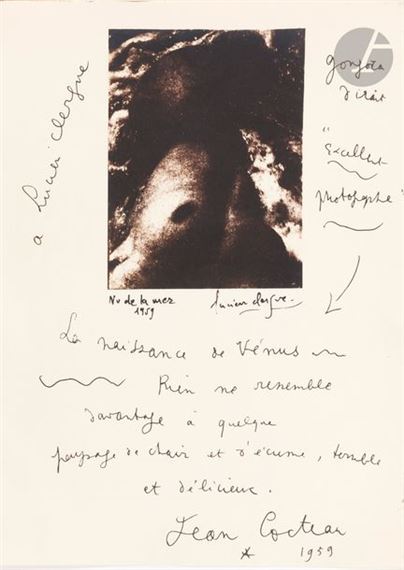 à Lucien Clergue
Gongora
dirait
"Excellent
photographe"
Nu de la mer
1959
Lucien Clergue
La naissance de Vénus
Rien ne ressemble
davantage à quelque
paysage de chair et d'écume, terrible
et délicieux.
Jean Cocteau
* 1959